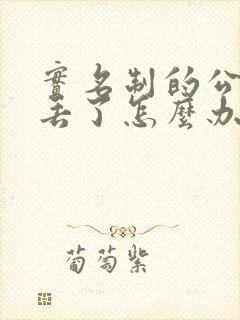 實名制的公
丟了怎麼办
葡萄紫